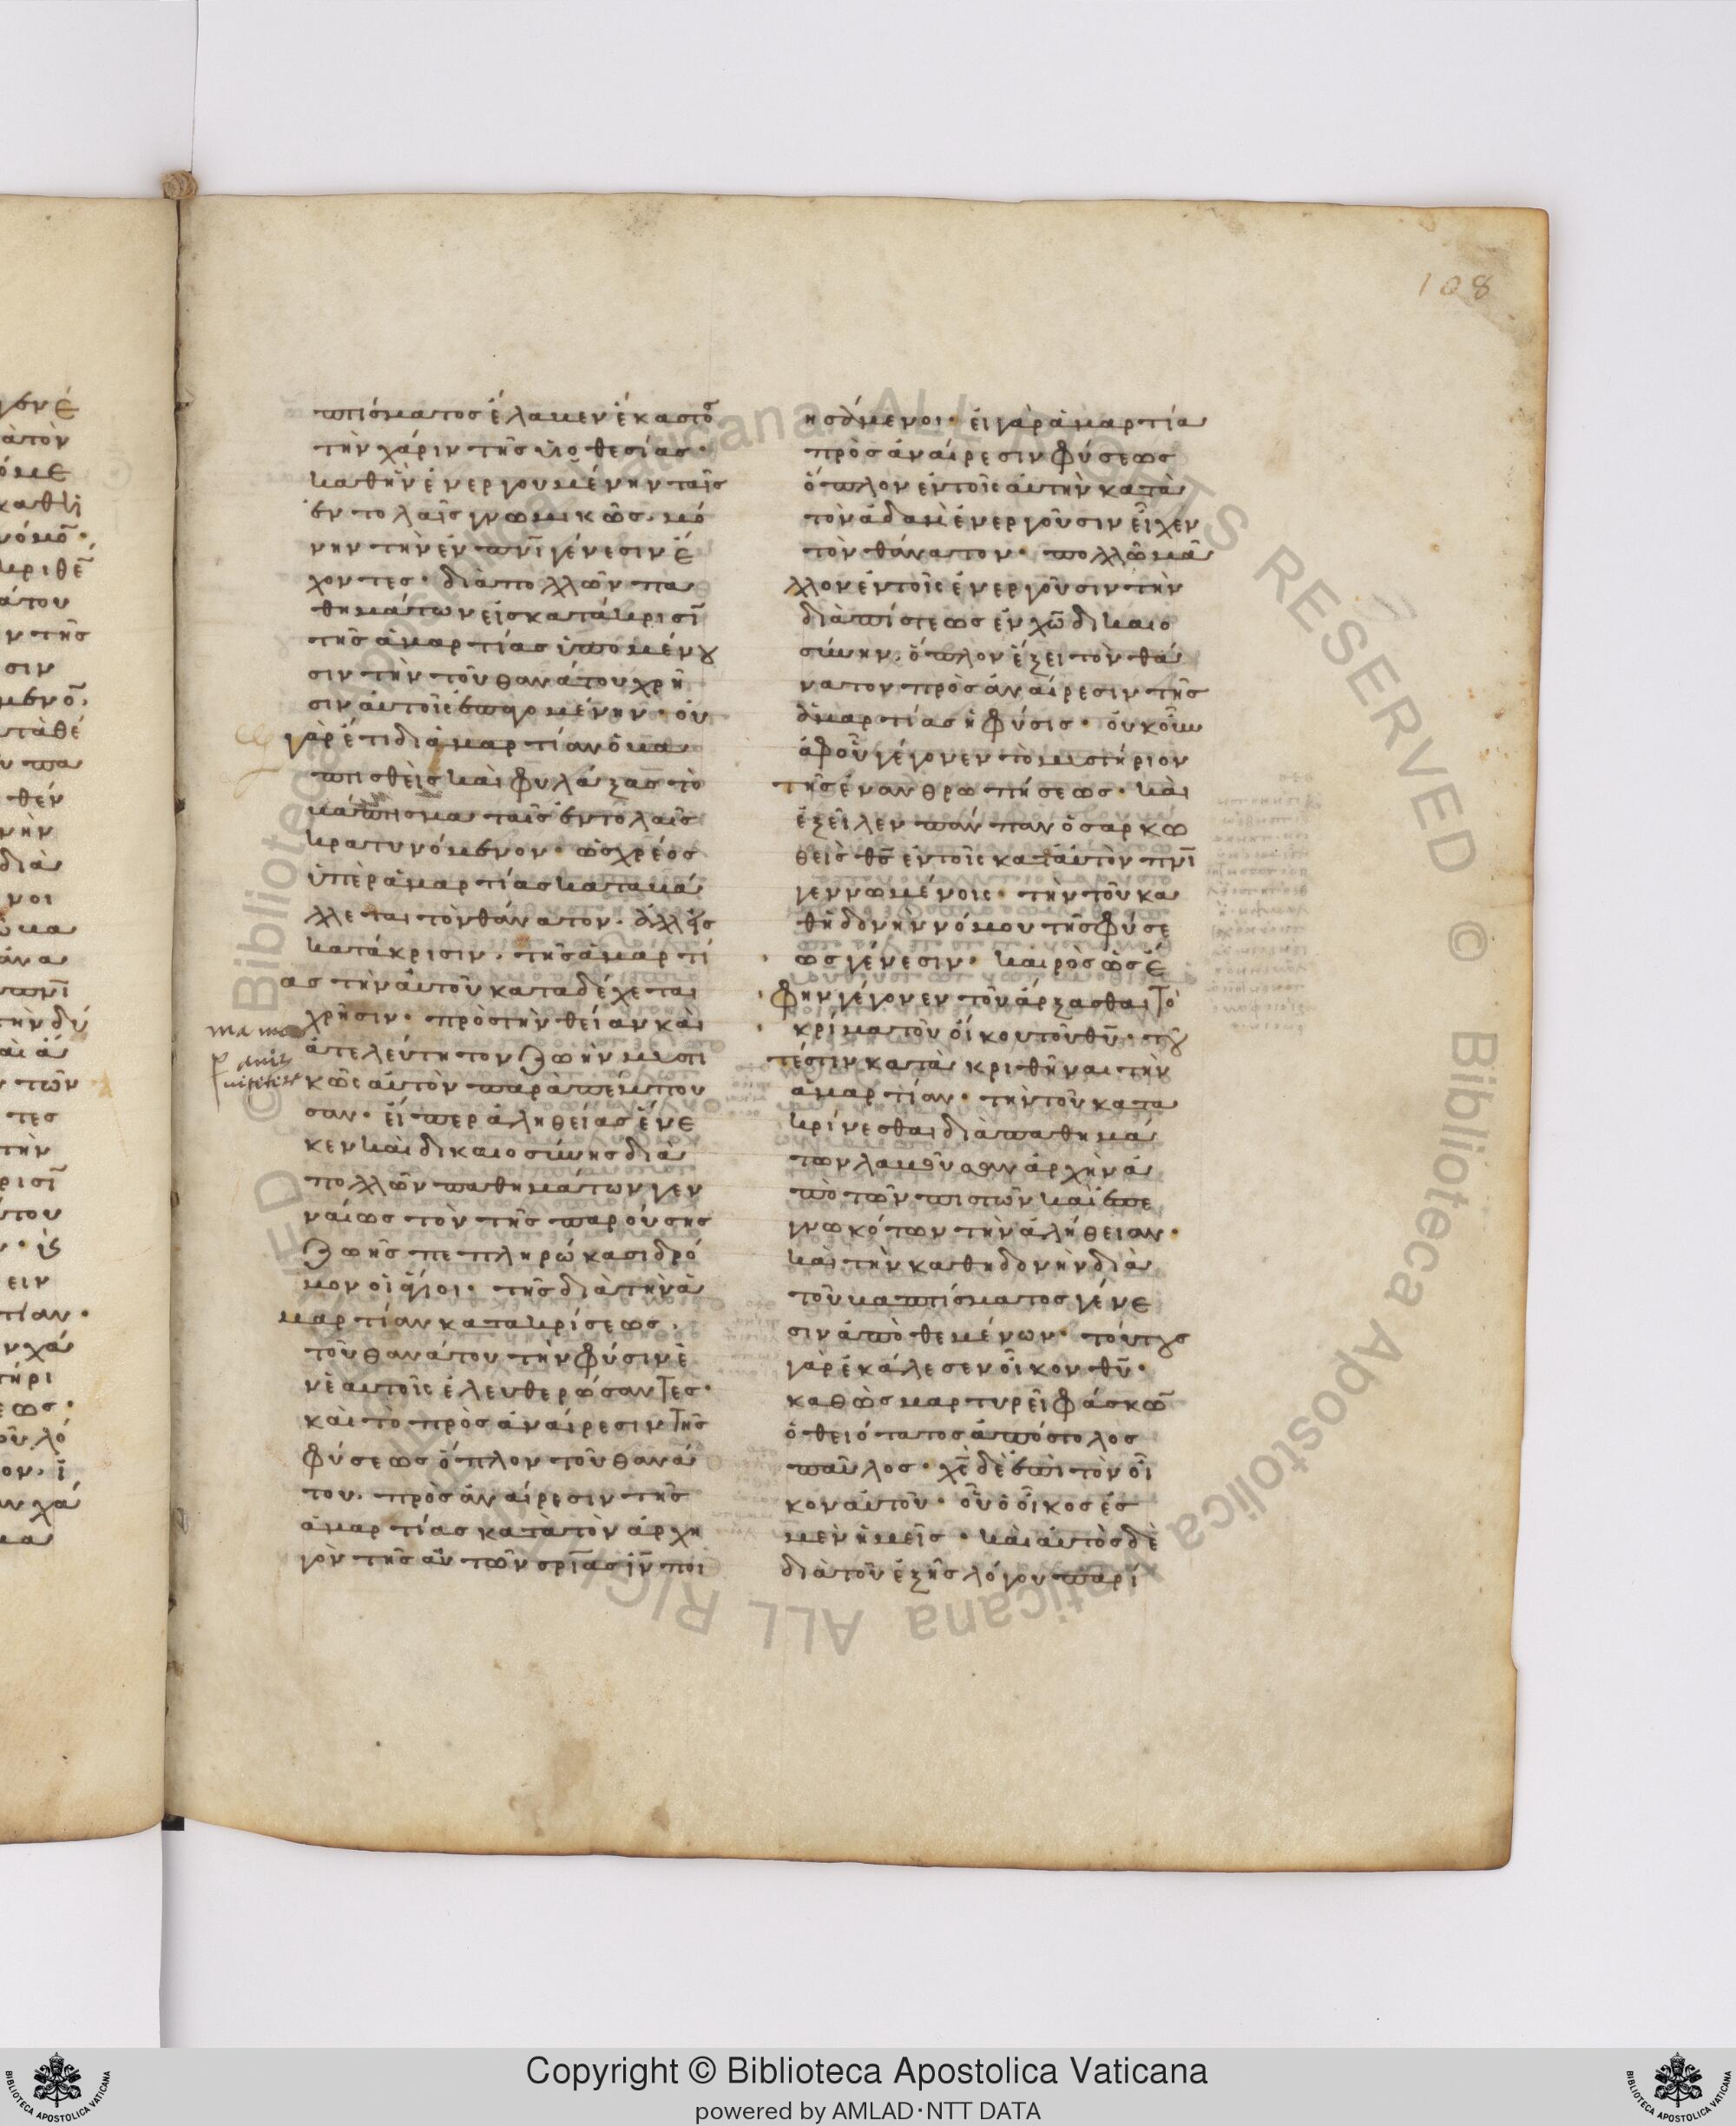 108
πτίσματος ἐλάβεν ἕκαστο̅
τὴν χάριν τῆς υἱοθεσίας·
καθ' ἣν ἐνεργουμένην ταῖς
ἐντολαῖς γνωμικῶς. μό
νην τὴν ἐν πνι̅ γένεσιν ἔ
χοντες· διὰ πολλῶν πα
θημάτων εἰς κατάκρισι̅
τῆς ἁμαρτίας ὑπομένου
σιν τὴν τοῦ θανάτου χρῆ
σιν αὐτοῖς ἐπαγομένην· οὐ
γὰρ ἔτι δι' ἁμαρτίαν ὁ βα
πτισθεὶς καὶ φυλάξας τὸ
βάπτισμα ταῖς ἐντολαῖς
κρατυνόμενον· ὡς χρέος
ὑπὲρ ἁμαρτίας καταβά
λλεται τὸν θάνατον. ἀλλ' εἰς
κατάκρισιν. τῆς ἁμαρτί
ας τὴν αὐτοῦ καταδέχεται
χρῆσιν· πρὸς τὴν θείαν καὶ
ἀτελεύτητον ζωὴν μυστι
κῶς αὐτὸν παραπέμπου
σαν· εἴπερ ἀληθείας ἕνε
κεν καὶ δικαιοσύνης διὰ
πολλῶν παθημάτων γεν
ναίως τὸν τῆς παρούσης
ζωῆς πεπληρώκασι δρό
μον οἱ ἅγιοι· τῆς διὰ τὴν ἁ
μαρτίαν κατακρίσεως.
τοῦ θανάτου τὴν φύσιν ἐ
ν ἑαυτοῖς ἐλευθερώσαντες·
καὶ τὸ πρὸς ἀναίρεσιν τῆς
φύσεως ὅπλον τοῦ θανά
του. πρὸς ἀναίρεσιν τῆς
ἁμαρτίας κατὰ τὸν ἀρχη
γὸν τῆς αὐτῶν σρι̅ας ιν̅ ποι
ησάμενοι· εἰ γὰρ ἁμαρτία
πρὸς ἀναίρεσιν φύσεως
ὅπλον ἐν τοῖς αὐτὴν κατὰ
τὸν ἀδὰμ ἐνεργοῦσιν εἶχεν
τὸν θάνατον· πολλῶ μᾶ
λλον ἐν τοῖς ἐνεργοῦσιν τὴν
διὰ πίστεως ἐν χω̅ δικαιο
σύνην. ὅπλον ἕξει τὸν θά
νατον πρὸς ἀναίρεσιν τῆς
ἁμαρτίας ἡ φύσις· οὐκοῦν
ἀφ' οὗ γέγονεν τὸ μυστήριον
τῆς ἐνανθρωπήσεως· καὶ
ἐξεῖλεν πάνπαν ὁ σαρκω
θεὶς θς̅ ἐν τοῖς κατ' αὐτὸν πνι̅
γεννωμένοις· τὴν τοῦ κα
θ' ἡδονὴν νόμου τῆς φύσε
ως γένεσιν· καιρὸς ὡς ἔ
φην γέγονεν τοῦ ἄρξασθαι τὸ
κρίμα τοῦ οἴκου τοῦ θυ̅· του
τέστιν κατακριθῆναι τὴν
ἁμαρτίαν· τὴν τοῦ κατα
κρίνεσθαι διὰ παθημά
των λαβοῦσαν ἀρχὴν ἀ
πὸ τῶν πιστῶν καὶ ἐπε
γνωκότων τὴν ἀλήθειαν·
καὶ τὴν καθ' ἡδονὴν διὰ
τοῦ βαπτίσματος γένε
σιν ἀποθεμένων· τούτους
γὰρ ἐκάλεσεν οἶκον θυ̅·
καθὼς μαρτυρεῖ φάσκω̅
ὁ θειότατος ἀπόστολος
παῦλος· χς̅ δὲ ἐπὶ τὸν οἶ
κον αὐτοῦ· οὗ ὁ οἶκος ἐσ
μὲν ἡμεῖς· καὶ αὐτὸς δὲ
διὰ τοῦ ἑξῆς λόγου παρί
Copyright © Biblioteca Apostolica Vaticana
powered by AMLAD·NTT DATA